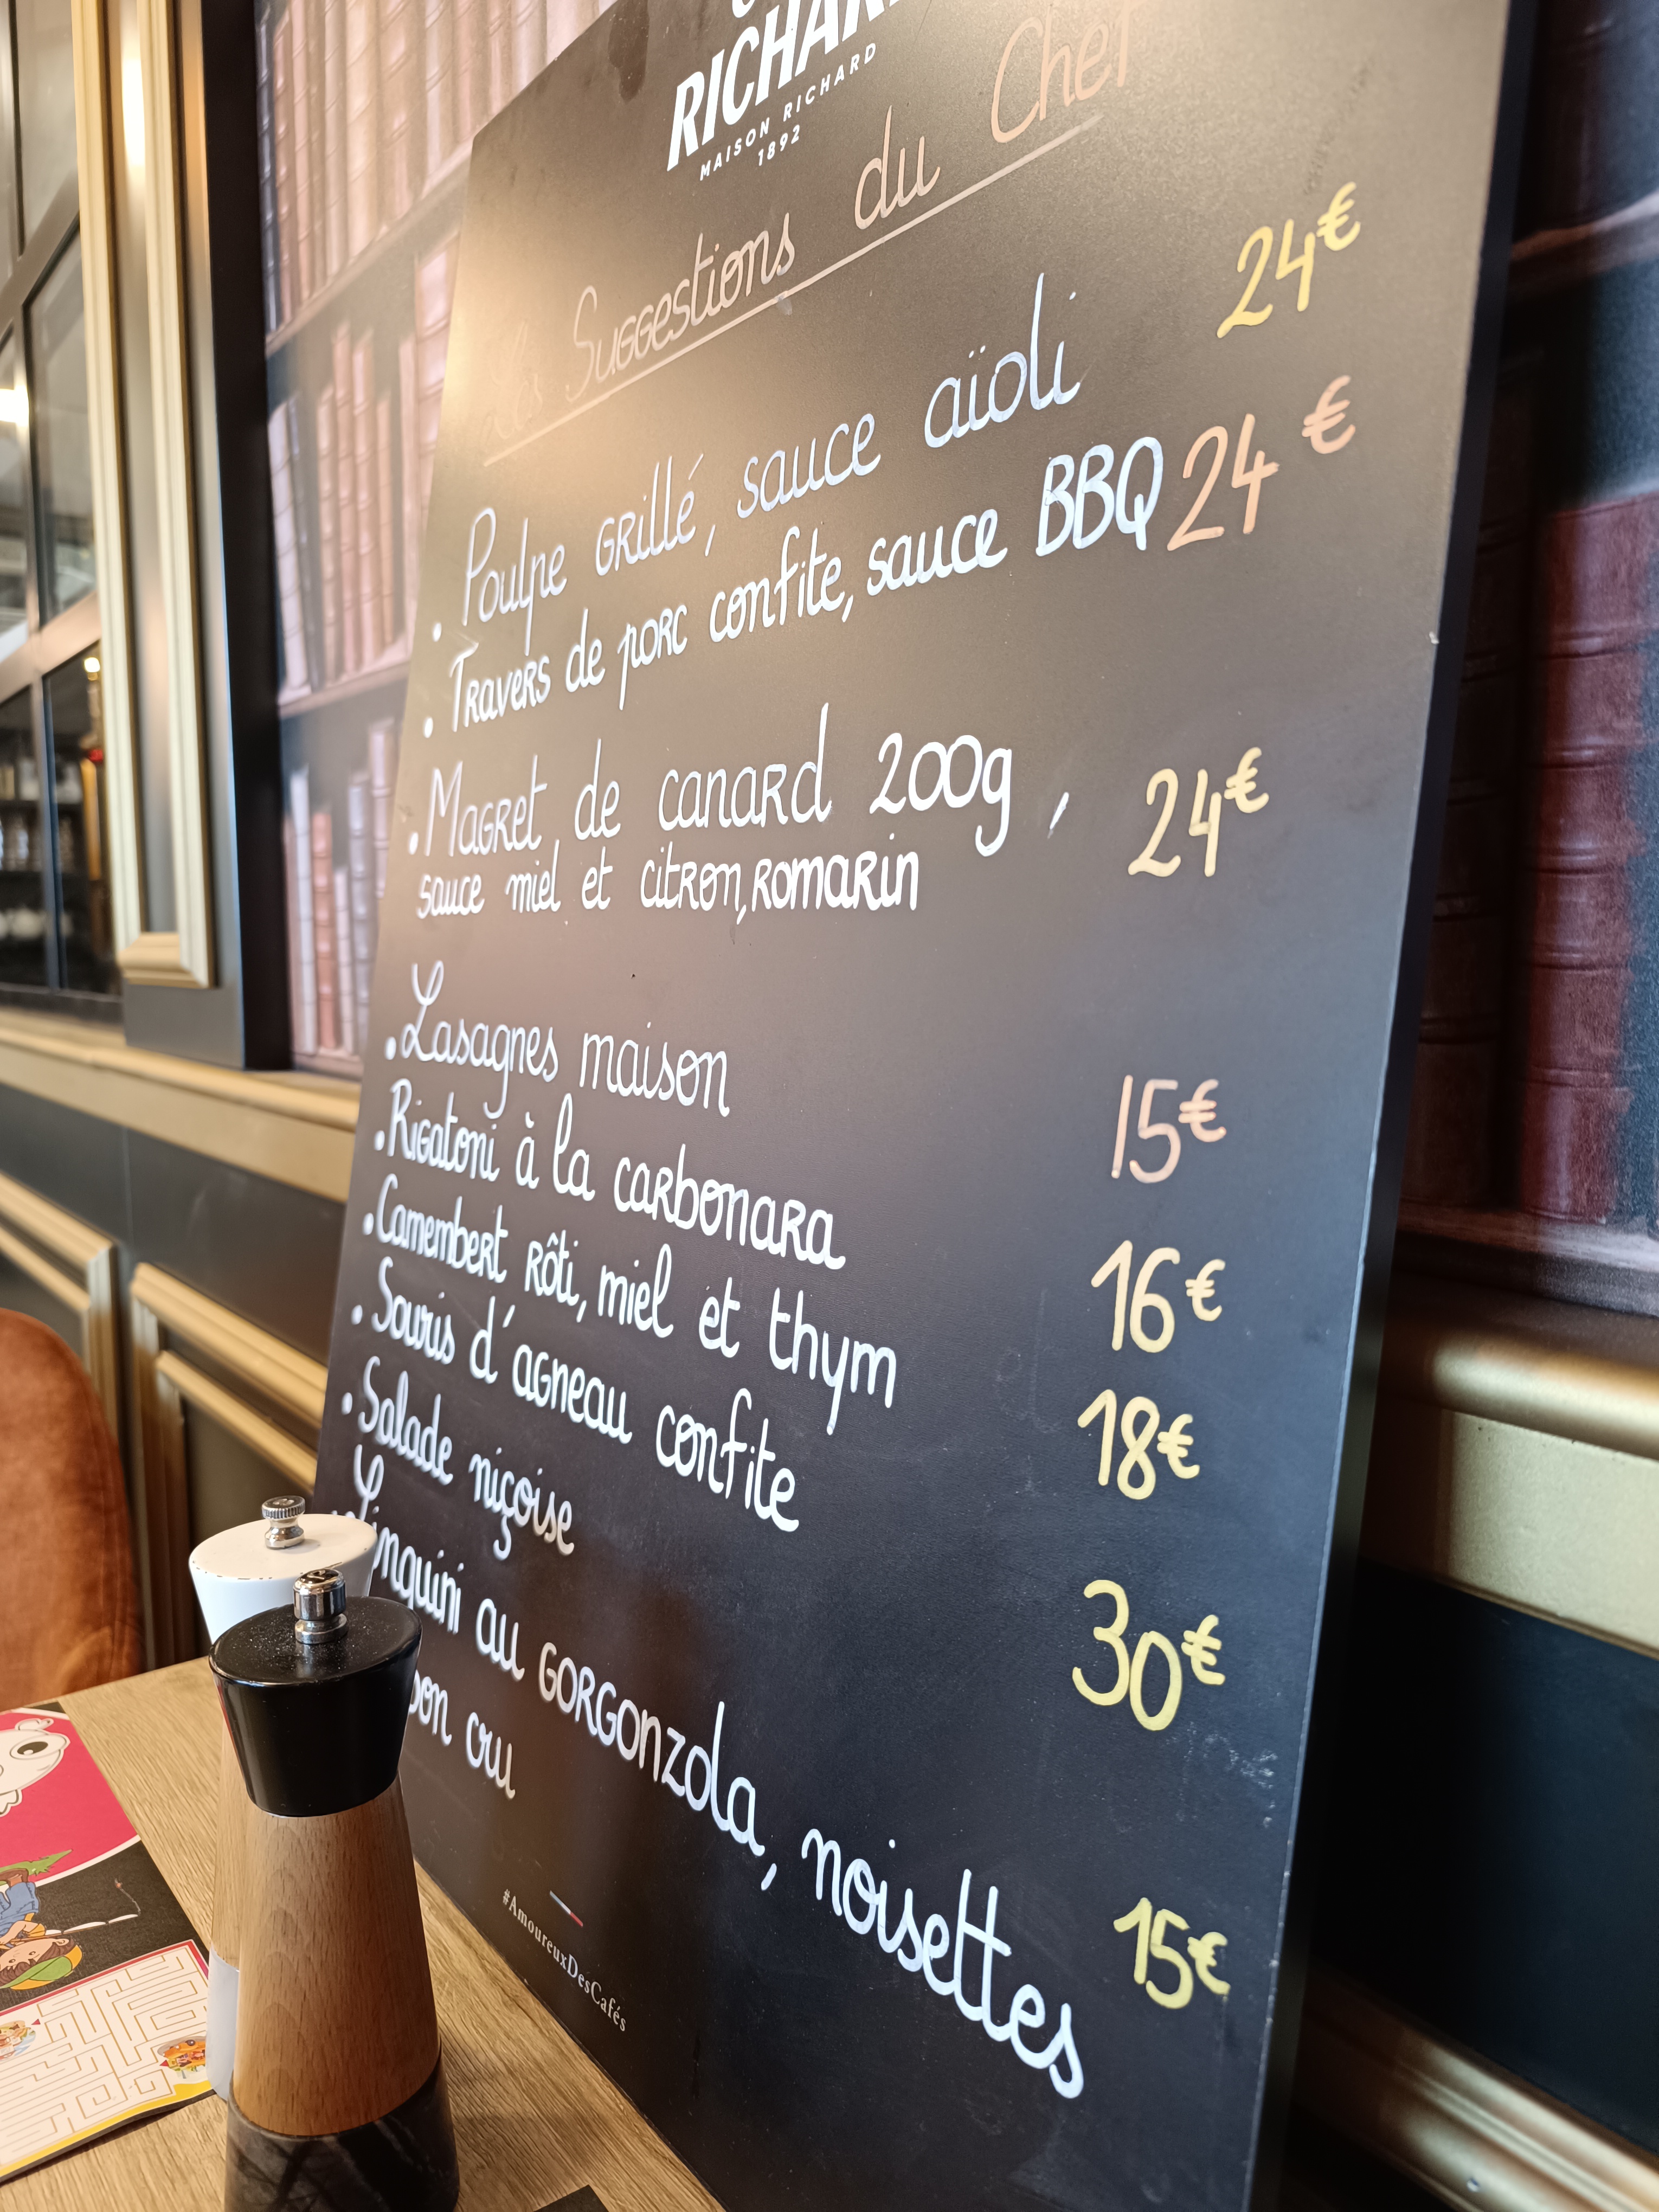 RICHARD
MAISON RICHARD
1892
Les Suggestions du Chef
. Poulpe grillé, sauce aïoli 24€
. Travers de porc confite, sauce BBQ 24€
. Magret de canard 200g, 24€
sauce miel et citron, romarin
. Lasagnes maison 15€
. Rigatoni à la carbonara 16€
. Camembert rôti, miel et thym 18€
. Souris d'agneau confite 30€
. Salade niçoise 15€
Linguini au gorgonzola, noisettes
cru
#AmoureuxDesCafés